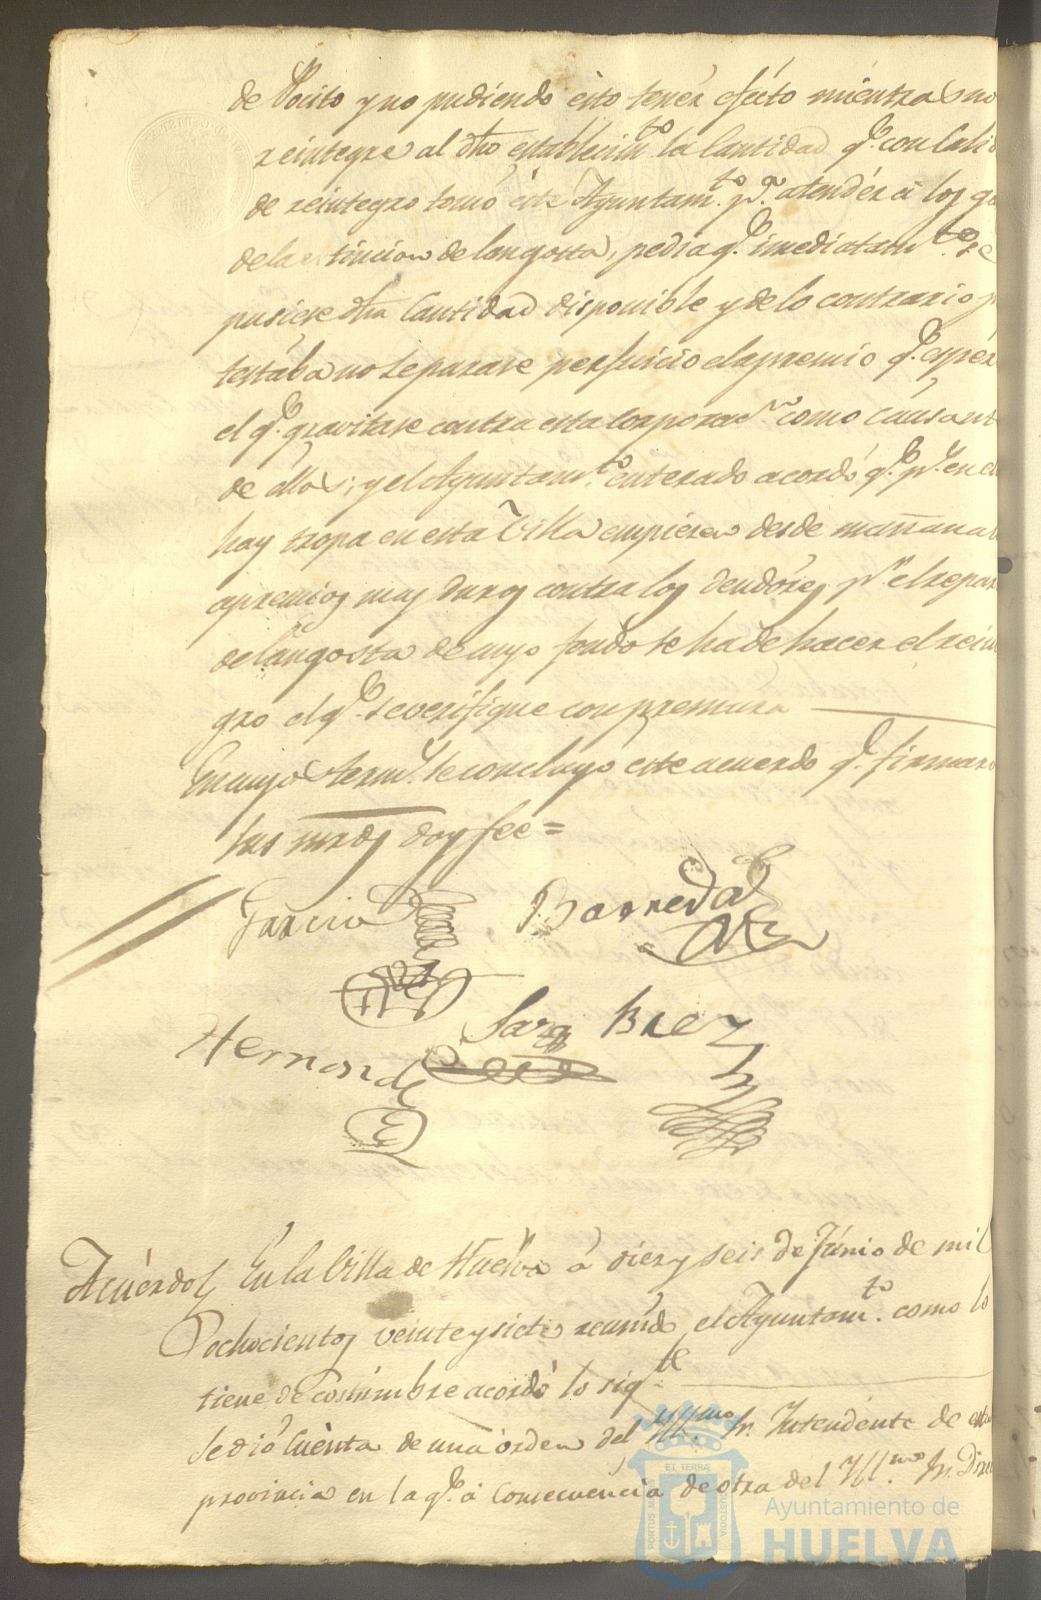 de Pocito y no pudiendo esto tener efecto mientras no
reintegre al dho establecim.to la Cantidad q.e con Calid
de reintegro tomó este Ayuntam.to p.a atendér á los ga
de la estincion de langosta, pedia q.e imediatam.te se
pusiese dha Cantidad disponible y de lo contrario p
testaba no le parase perjuicio el apremio q.e espér
el q.e gravitase contra esta Corporac.on como causant
de éllos; y el Ayuntam.to enterado acordó q.e p.r en
hay tropa en esta Villa empiécen desde mañana
apremios mas duros contra los deudóres p.r el repar
de langosta de cuyo fondo se ha de hacer el rein
gro el q.e se verifique con premura
En cuyos term.s se concluyo este acuerdo q.e firmaro
sus mrds doy fee =
Garcia Barreda
Hernande Baez
Acuérdo En la Villa de Huelva á diez y seis de Junio de mil
ochocientos veinte y siete reunido el Ayuntam.to como lo
tiene de costumbre acordó lo sig.te
Se dió Cuénta de una órden del Yll.mo Sr. Intendente de esta
provincia en la q.e á consecuencia de otra del Yll.mo Sr. Dire
ET TERRAE
PORTUS MARIS
CUSTODIA
Ayuntamiento de
HUELVA